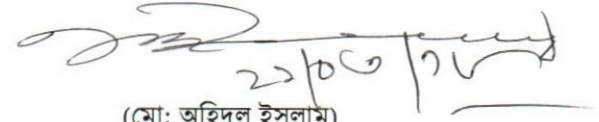 ২১/০৩/১৮
(মো: অহিদুল ইসলাম)